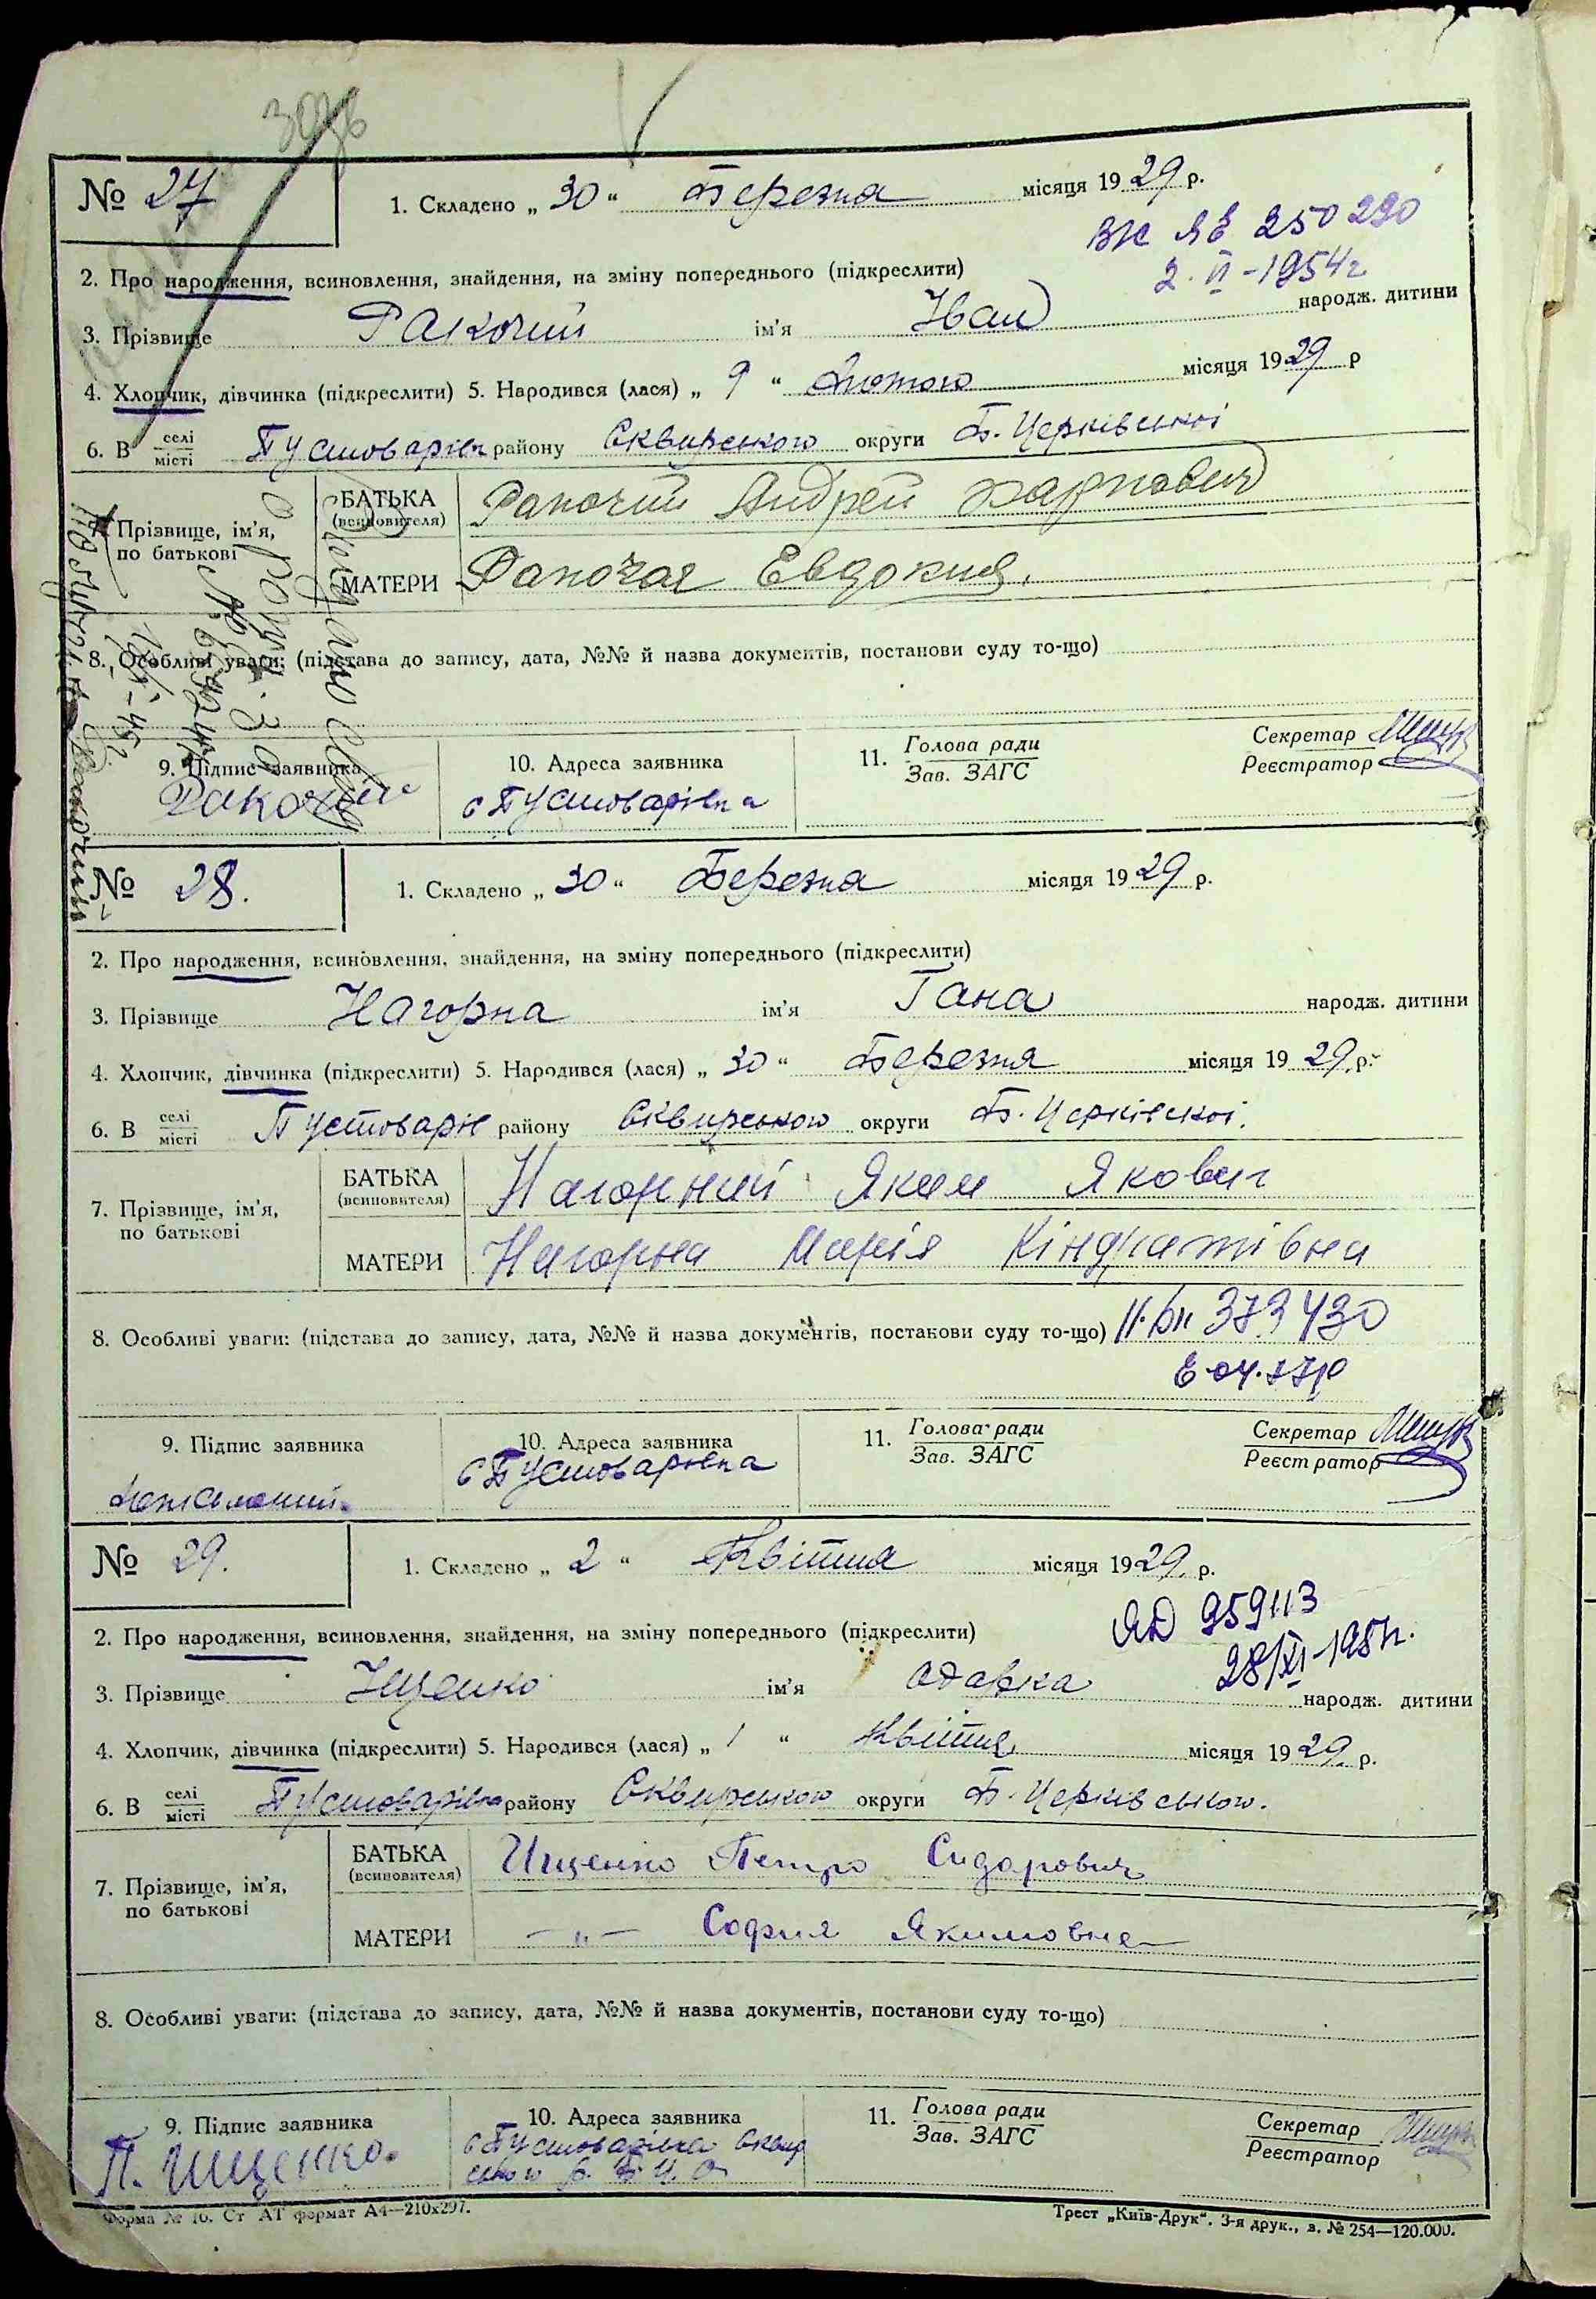 № 27
1. Складено „ 30 “ Березня місяця 19 29 р.
ВК ЯЄ 250290
2. VI - 1954 г
2. Про народження, всиновлення, знайдення, на зміну попереднього (підкреслити)
3. Прізвище Ракочий ім'я Іван народж. дитини
4. Хлопчик, дівчинка (підкреслити) 5. Народився (лася) „ 9 “ Лютого місяця 19 29 р
6. В селі місті Пустоварівка району Сквирського округи Б. Церківської
Прізвище, ім'я, по батькові
БАТЬКА (всиновителя) Ракочий Андрей Карпович
МАТЕРИ Ракочая Евдокия.
8. Особливі уваги: (підстава до запису, дата, №№ й назва документів, постанови суду то-що)
9. Підпис заявника
Ракочий
10. Адреса заявника
с Пустоварівка
11. Голова ради
Зав. ЗАГС
Секретар
Реєстратор
№ 28.
1. Складено „ 30 “ Березня місяця 19 29 р.
2. Про народження, всиновлення, знайдення, на зміну попереднього (підкреслити)
3. Прізвище Нагорна ім'я Гана народж. дитини
4. Хлопчик, дівчинка (підкреслити) 5. Народився (лася) „ 30 “ Березня місяця 19 29. р.
6. В селі місті Пустоварів району Сквирського округи Б. Церківської.
7. Прізвище, ім'я, по батькові
БАТЬКА (всиновителя) Нагорний Яким Якович
МАТЕРИ Нагорна Марія Кіндратівна
8. Особливі уваги: (підстава до запису, дата, №№ й назва документів, постанови суду то-що) 373430
9. Підпис заявника
10. Адреса заявника
с Пустоварівка
11. Голова ради
Зав. ЗАГС
Секретар
Реєстратор
№ 29.
1. Складено „ 2 “ Квітня місяця 19 29. р.
ЯД 959113
2. Про народження, всиновлення, знайдення, на зміну попереднього (підкреслити)
3. Прізвище Іщенко ім'я Одарка народж. дитини
4. Хлопчик, дівчинка (підкреслити) 5. Народився (лася) „ 1 “ Квітня місяця 19 29. р.
6. В селі місті Пустоварівка району Сквирського округи Б. Церківського.
7. Прізвище, ім'я, по батькові
БАТЬКА (всиновителя) Ищенко Петро Сидорович
МАТЕРИ - " - София Якимовна
8. Особливі уваги: (підстава до запису, дата, №№ й назва документів, постанови суду то-що)
9. Підпис заявника
П. Ищенко.
10. Адреса заявника
с Пустоварівка Сквир
ського р. Б. Ц. О
11. Голова ради
Зав. ЗАГС
Секретар
Реєстратор
Форма № 16. Ст АТ формат А4—210х297.
Трест „Київ-Друк“. 3-я друк., з. № 254—120.000.